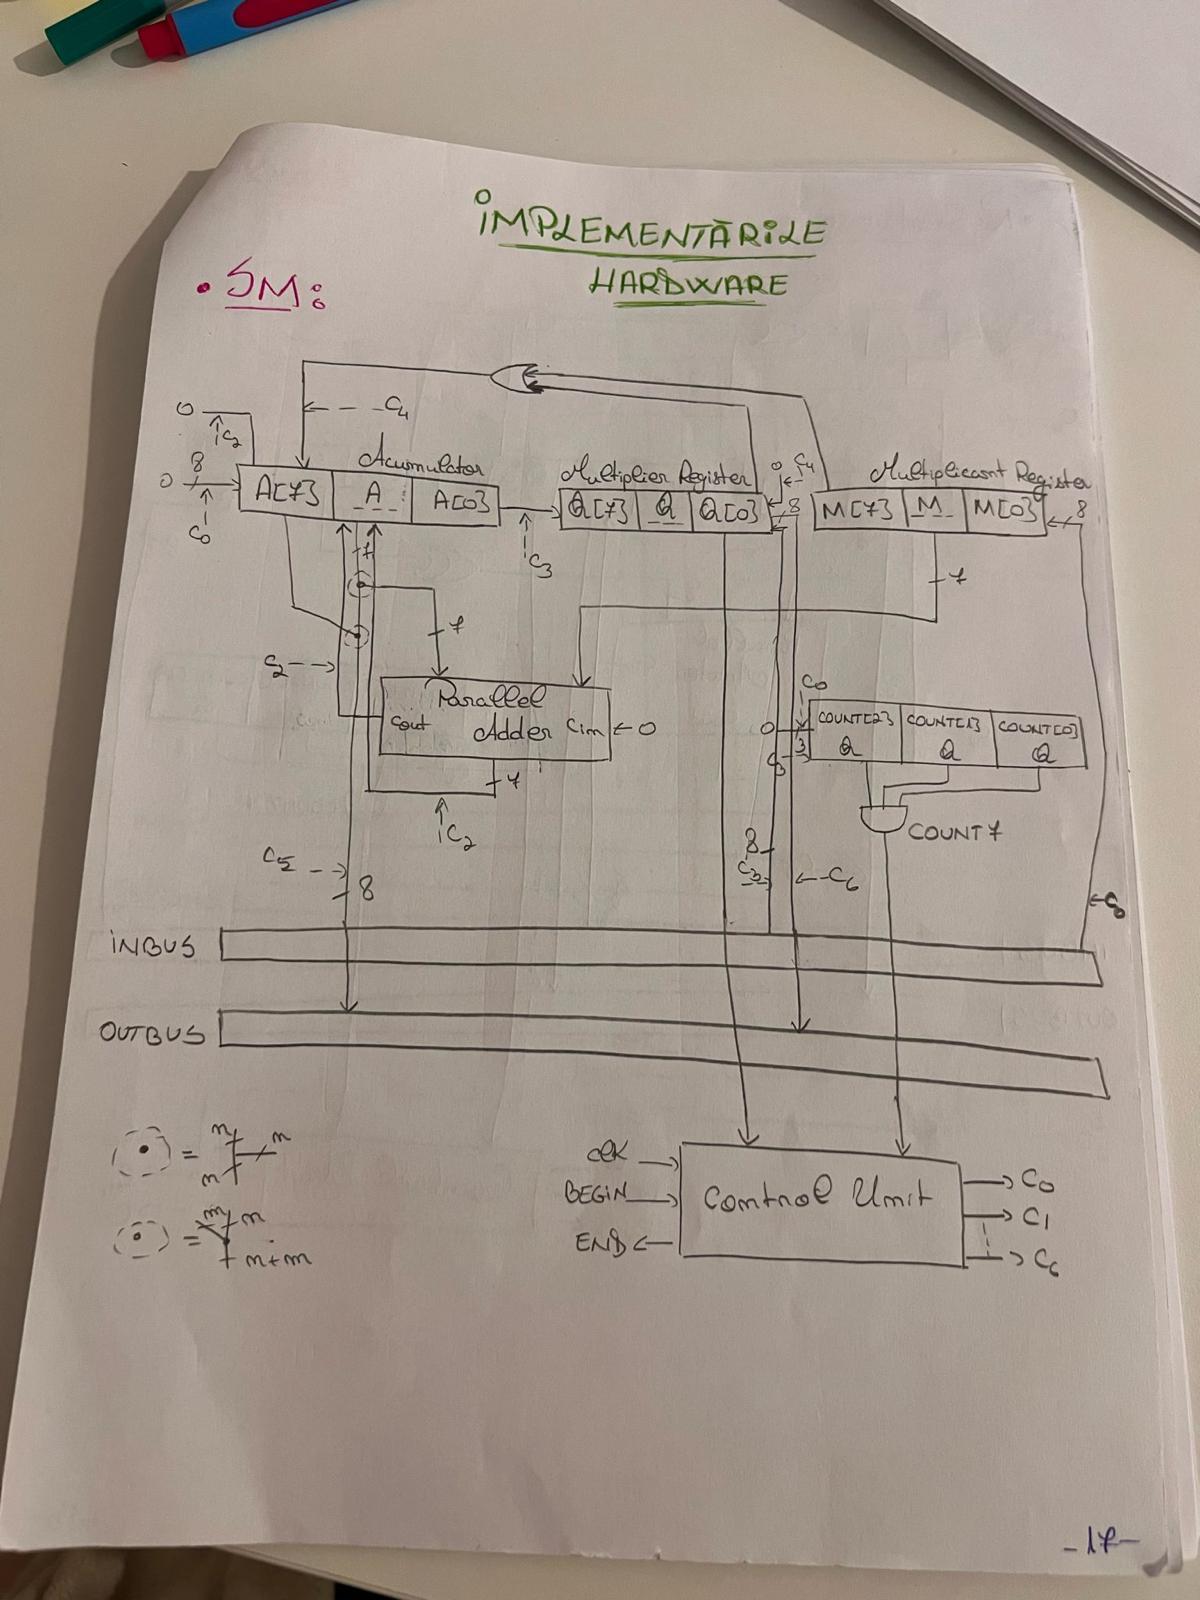 IMPLEMENTĂRILE
HARDWARE
• SM:
C4
0
C2
8
0
C0
Acumulator
A[7] A A[0]
C3
Multiplier Register
Q[7] Q Q[0]
0 C4
8
Multiplicant Register
M[7] M M[0]
8
7
7
7
C2
Parallel
Adder
Cout
Cin ← 0
7
C2
C0
0
3
C3
COUNT[2] COUNT[1] COUNT[0]
Q Q Q
COUNT7
C5
8
8
C6
INBUS
OUTBUS
n
n
n
=
m
n
n+m
=
clK
BEGIN
END
Control Unit
C0
C1
C6
-17-